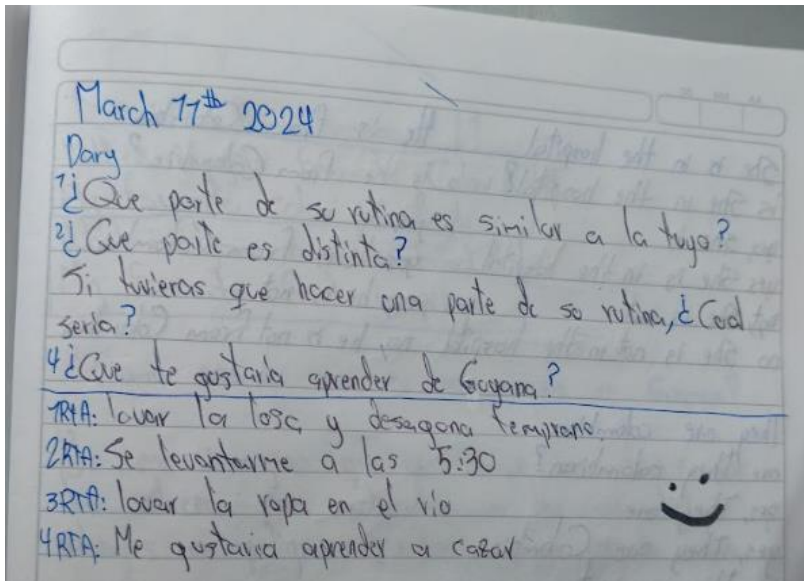 March 11th 2024
Dary
1¿Que parte de su rutina es similar a la tuya?
2¿Que parte es distinta?
Si tuvieras que hacer una parte de su rutina, ¿Cual
seria?
4¿Que te gustaria aprender de Guyana?
1RTA: lavar la losa y desayuna temprano
2RTA: Se levantarme a las 5:30
3RTA: lavar la ropa en el rio
4RTA: Me gustaria aprender a cazar